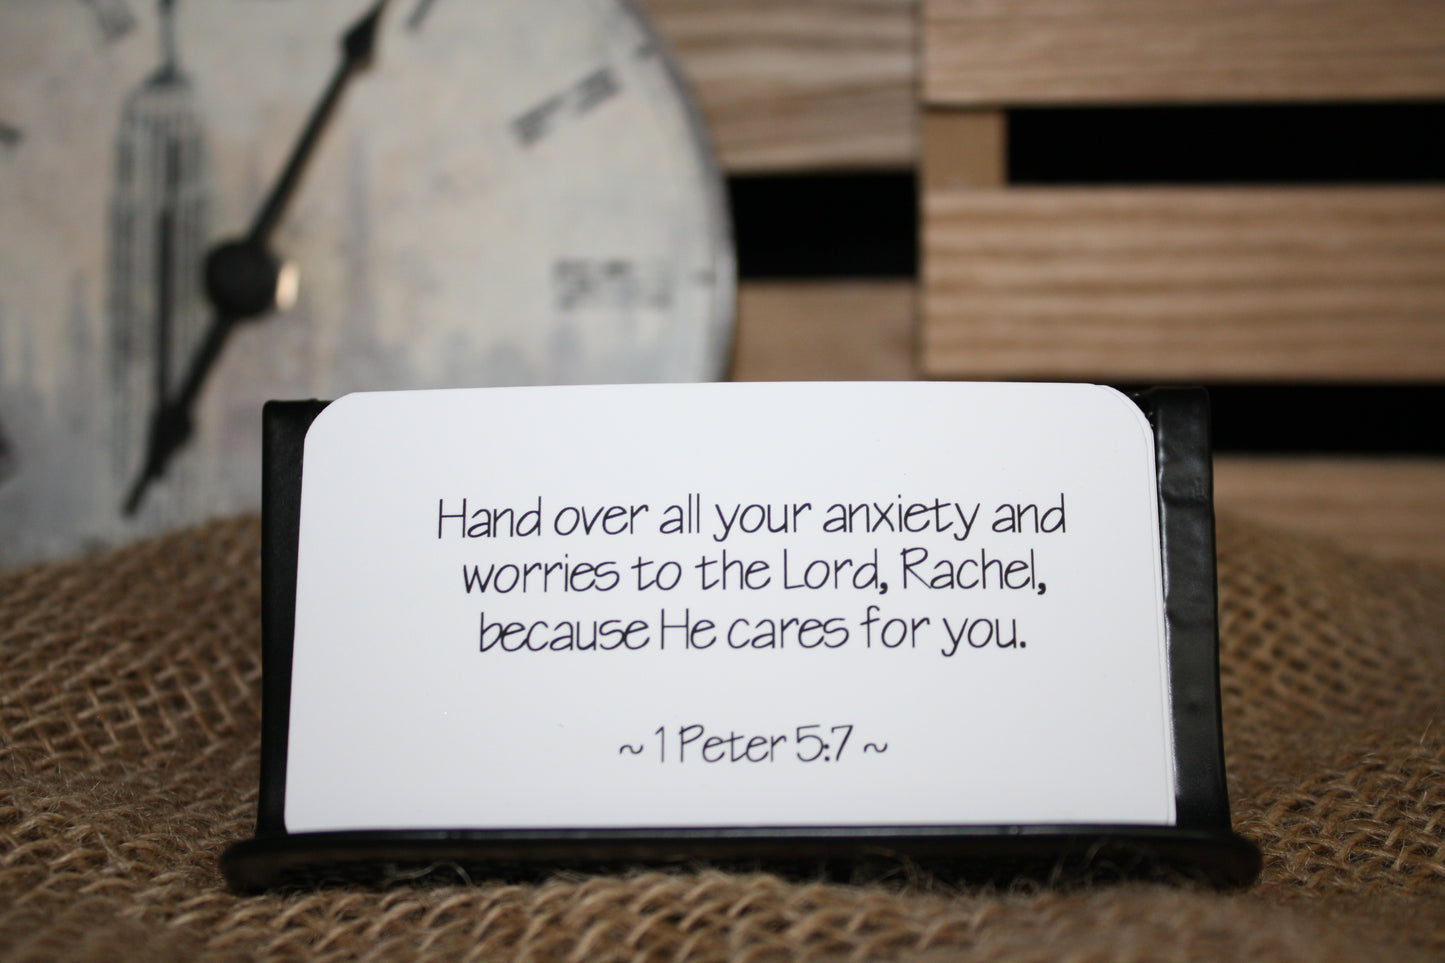 Hand over all your anxiety and
worries to the Lord, Rachel,
because He cares for you.
~ 1 Peter 5:7 ~